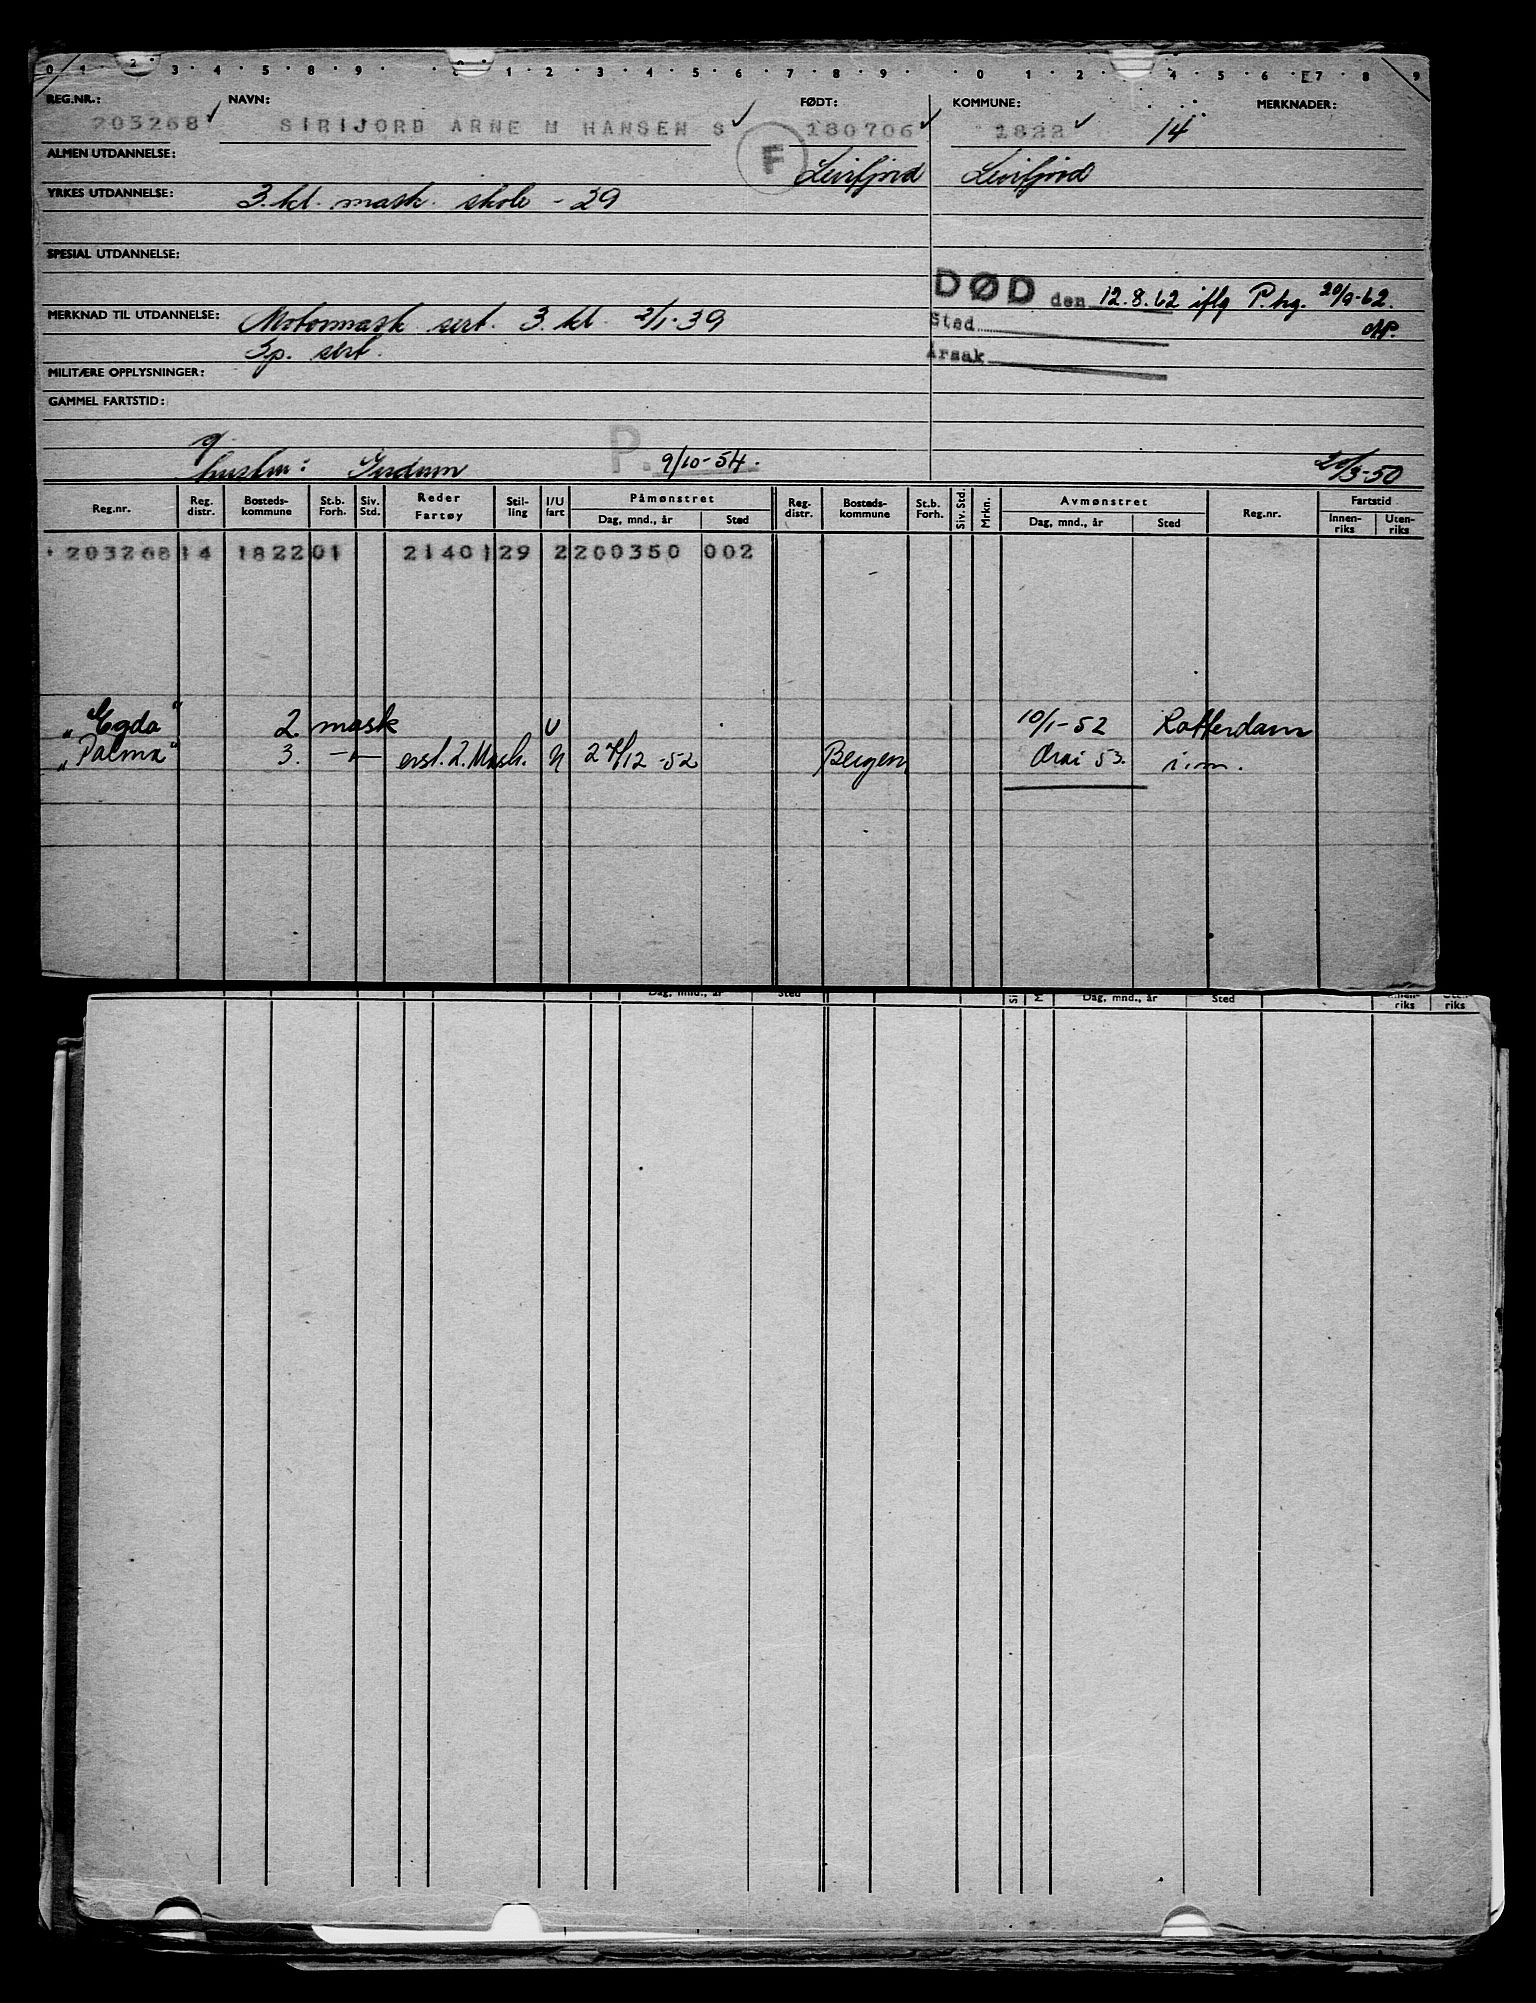 0 1 2 3 4 5 8 9 0 1 2 3 4 5 6 7 8 9 0 1 2 4 5 6 7 8 9
REG.NR.: NAVN: FØDT: KOMMUNE: MERKNADER:
203268 SIRIJORD ARNE M HANSEN S 180706 1822 14
ALMEN UTDANNELSE: F Leirfjord Leirfjord
YRKES UTDANNELSE: 3. kl. mask. skole - 29
SPESIAL UTDANNELSE:
DØD den 12.8.62 iflg P. hg. 20/9-62.
MERKNAD TIL UTDANNELSE: Motormask sert. 3. kl. 2/1-39
Sted
Sp. sert.
Årsak
MILITÆRE OPPLYSNINGER:
GAMMEL FARTSTID:
g.
hustru: P. 9/10-54. 20/3-50
Reg.nr. Reg. distr. Bosteds- kommune St.b. Forh. Siv. Std. Reder Fartøy Stil- ling I/U fart Påmønstret Reg. distr. Bosteds- kommune St.b. Forh. Siv. Std. Mrkn. Avmønstret Reg.nr. Fartstid
Dag, mnd., år Sted Dag, mnd., år Sted Innen- riks Uten- riks
203268 14 1822 01 21401 29 2 200350 002
"Egda" 2. mask U 10/1-52 Rotterdam
"Palma" 3. -"- erst. 2. Mask. N 27/12-52 Bergen 53. i.m.
Dag, mnd., år Sted Dag, mnd., år Sted Innen- riks Uten- riks